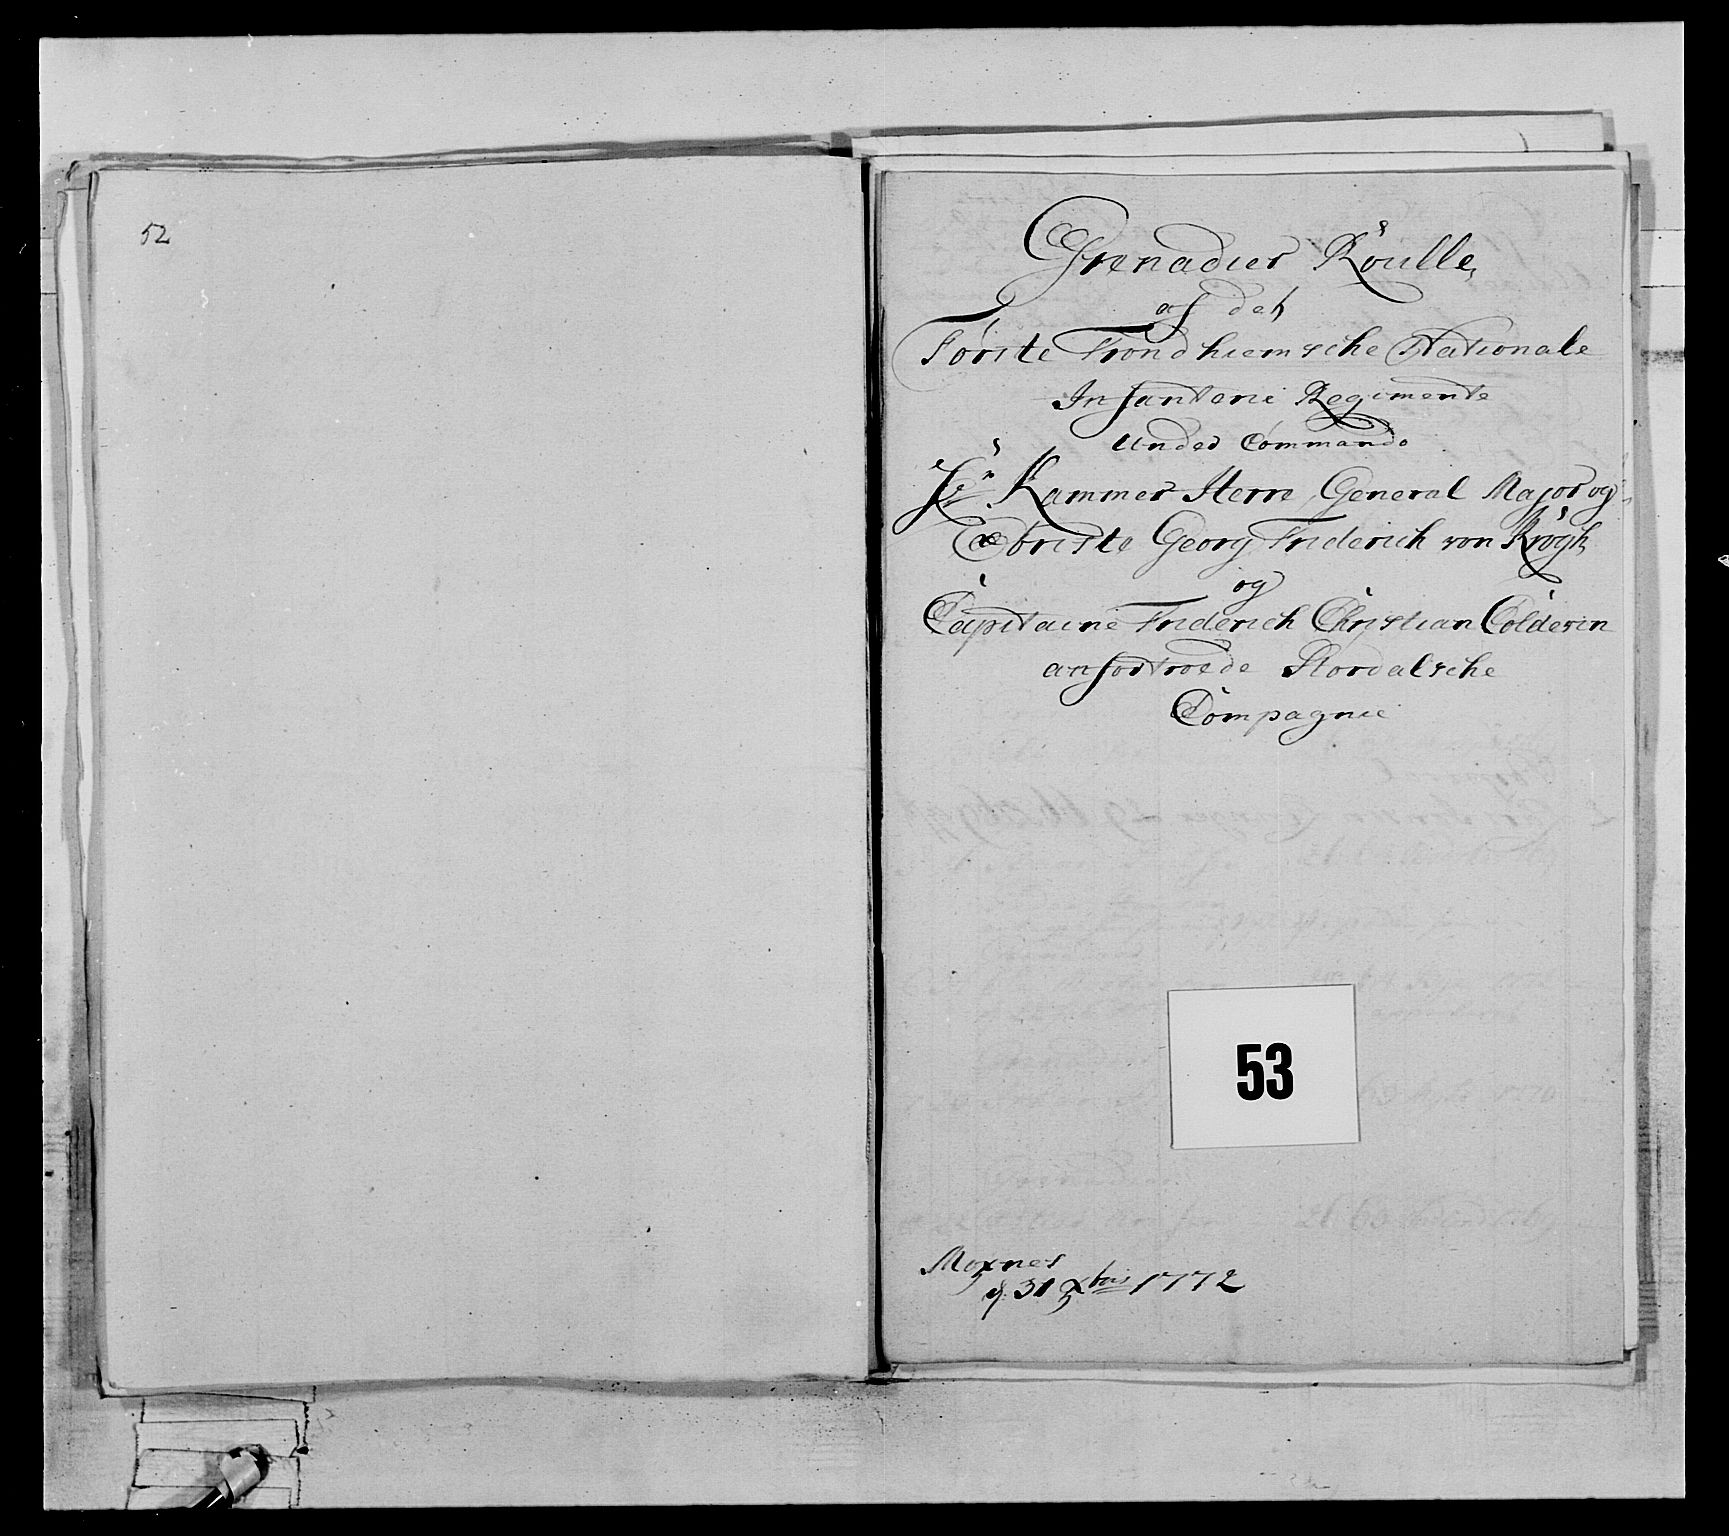 52
Grenadier Roulle,
af det
Første Trondhiemsche Nationale
Infanterie Regimente
Under Commando
Hr. Kammer Herre General Major og
Obriste Georg Friderich von Krogh
og
Capitaine Friderich Christian Colderin
anfortroede Stordalsche
Compagnie
53
Moxnes
d. 31 Xbris 1772